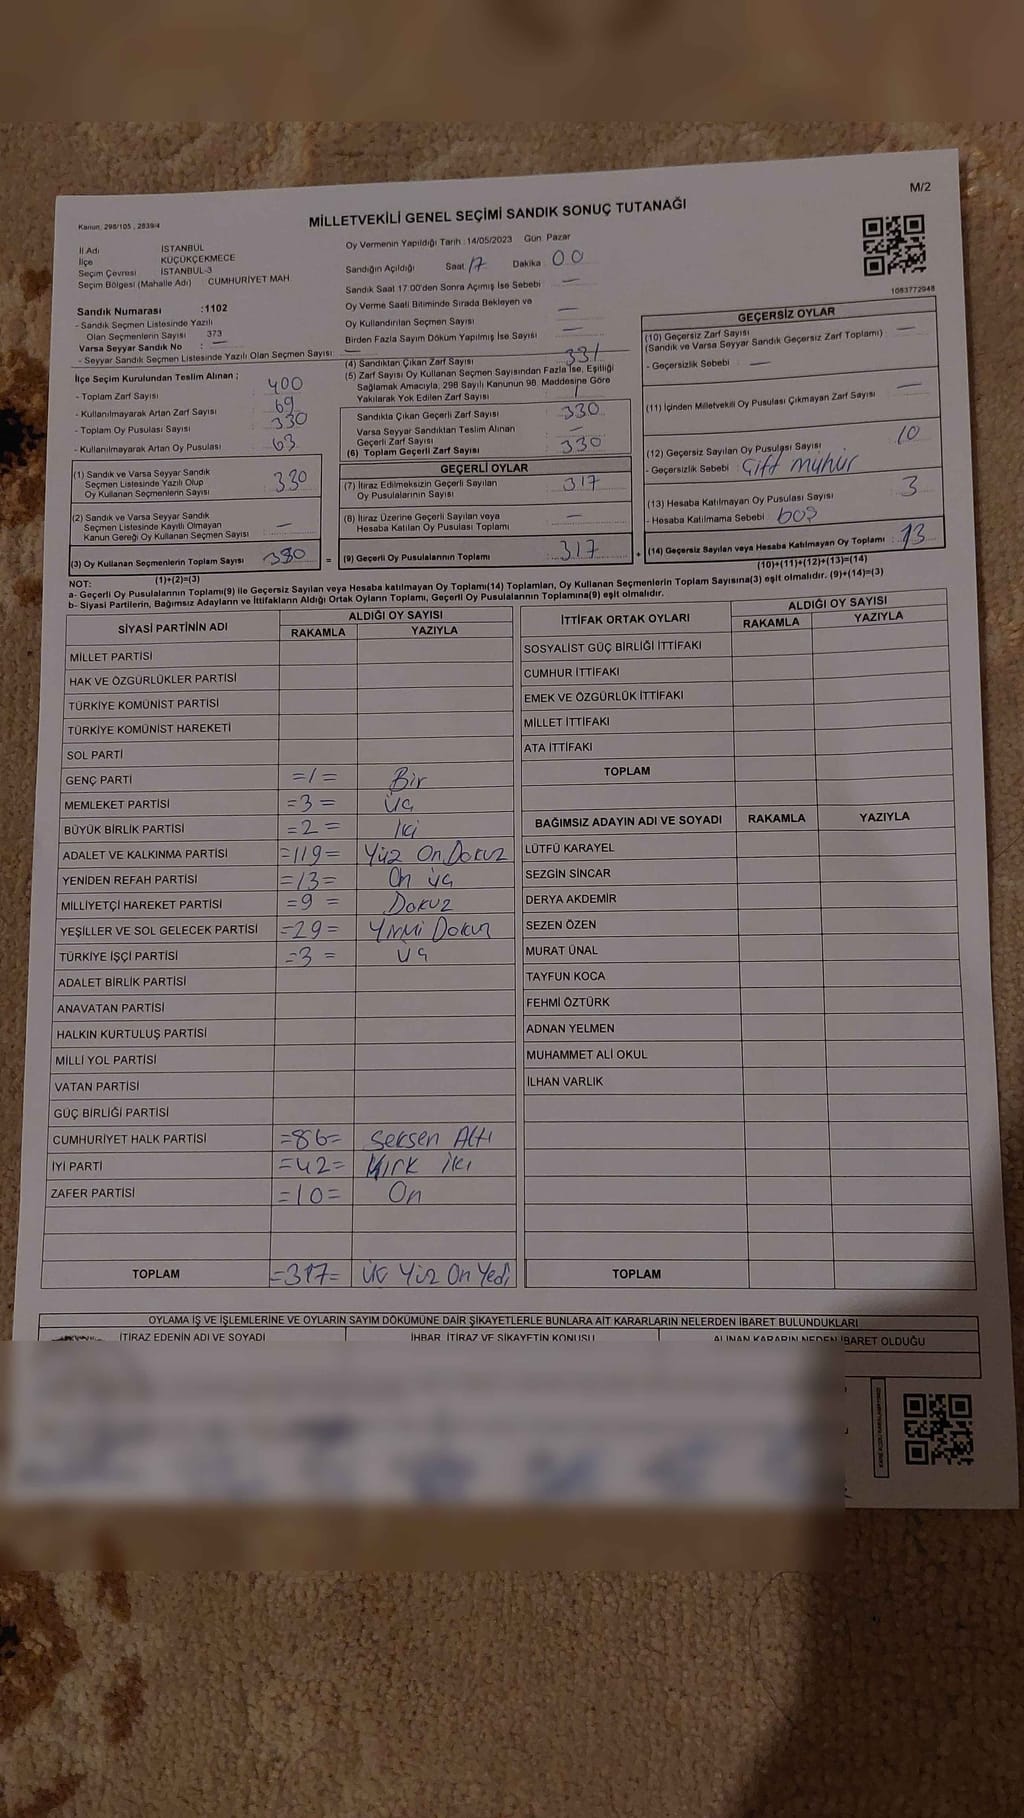 M/2
Kanun, 298/105 , 2839/4
MİLLETVEKİLİ GENEL SEÇİMİ SANDIK SONUÇ TUTANAĞI
İl Adı İSTANBUL
İlçe KÜÇÜKÇEKMECE
Seçim Çevresi İSTANBUL-3
Seçim Bölgesi (Mahalle Adı) CUMHURİYET MAH.
Sandık Numarası :1102
- Sandık Seçmen Listesinde Yazılı
Olan Seçmenlerin Sayısı 373
Varsa Seyyar Sandık No : —
- Seyyar Sandık Seçmen Listesinde Yazılı Olan Seçmen Sayısı: —
İlçe Seçim Kurulundan Teslim Alınan ;
- Toplam Zarf Sayısı : 400
- Kullanılmayarak Artan Zarf Sayısı : 69
- Toplam Oy Pusulası Sayısı : 330
- Kullanılmayarak Artan Oy Pusulası : 63
(1) Sandık ve Varsa Seyyar Sandık
Seçmen Listesinde Yazılı Olup
Oy Kullanan Seçmenlerin Sayısı : 330
(2) Sandık ve Varsa Seyyar Sandık
Seçmen Listesinde Kayıtlı Olmayan
Kanun Gereği Oy Kullanan Seçmen Sayısı : —
(3) Oy Kullanan Seçmenlerin Toplam Sayısı : 330
(1)+(2)=(3)
Oy Vermenin Yapıldığı Tarih :14/05/2023 Gün: Pazar
Sandığın Açıldığı Saat 17 Dakika 00
Sandık Saat 17:00'den Sonra Açımış İse Sebebi : —
Oy Verme Saati Bitiminde Sırada Bekleyen ve
Oy Kullandırılan Seçmen Sayısı : —
Birden Fazla Sayım Döküm Yapılmış İse Sayısı : —
(4) Sandıktan Çıkan Zarf Sayısı : 331
(5) Zarf Sayısı Oy Kullanan Seçmen Sayısından Fazla İse, Eşitliği
Sağlamak Amacıyla, 298 Sayılı Kanunun 98. Maddesine Göre
Yakılarak Yok Edilen Zarf Sayısı : 1
Sandıkta Çıkan Geçerli Zarf Sayısı : 330
Varsa Seyyar Sandıktan Teslim Alınan
Geçerli Zarf Sayısı : —
(6) Toplam Geçerli Zarf Sayısı : 330
GEÇERLİ OYLAR
(7) İtiraz Edilmeksizin Geçerli Sayılan
Oy Pusulalarının Sayısı : 317
(8) İtiraz Üzerine Geçerli Sayılan veya
Hesaba Katılan Oy Pusulası Toplamı : —
= (9) Geçerli Oy Pusulalarının Toplamı : 317 +
1083772948
GEÇERSİZ OYLAR
(10) Geçersiz Zarf Sayısı : —
(Sandık ve Varsa Seyyar Sandık Geçersiz Zarf Toplamı)
- Geçersizlik Sebebi : —
(11) İçinden Milletvekili Oy Pusulası Çıkmayan Zarf Sayısı : —
(12) Geçersiz Sayılan Oy Pusulası Sayısı : 10
- Geçersizlik Sebebi : Çift mühür
(13) Hesaba Katılmayan Oy Pusulası Sayısı : 3
- Hesaba Katılmama Sebebi : boş
(14) Geçersiz Sayılan veya Hesaba Katılmayan Oy Toplamı : 13
(10)+(11)+(12)+(13)=(14)
NOT:
a- Geçerli Oy Pusulalarının Toplamı(9) ile Geçersiz Sayılan veya Hesaba katılmayan Oy Toplamı(14) Toplamları, Oy Kullanan Seçmenlerin Toplam Sayısına(3) eşit olmalıdır. (9)+(14)=(3)
b- Siyasi Partilerin, Bağımsız Adayların ve İttifakların Aldığı Ortak Oyların Toplamı, Geçerli Oy Pusulalarının Toplamına(9) eşit olmalıdır.
SİYASİ PARTİNİN ADI ALDIĞI OY SAYISI
RAKAMLA YAZIYLA
MİLLET PARTİSİ
HAK VE ÖZGÜRLÜKLER PARTİSİ
TÜRKİYE KOMÜNİST PARTİSİ
TÜRKİYE KOMÜNİST HAREKETİ
SOL PARTİ
GENÇ PARTİ =1= Bir
MEMLEKET PARTİSİ =3= üç
BÜYÜK BİRLİK PARTİSİ =2= İki
ADALET VE KALKINMA PARTİSİ =119= Yüz On Dokuz
YENİDEN REFAH PARTİSİ =13= On üç
MİLLİYETÇİ HAREKET PARTİSİ =9= Dokuz
YEŞİLLER VE SOL GELECEK PARTİSİ =29= Yirmi Dokuz
TÜRKİYE İŞÇİ PARTİSİ =3= üç
ADALET BİRLİK PARTİSİ
ANAVATAN PARTİSİ
HALKIN KURTULUŞ PARTİSİ
MİLLİ YOL PARTİSİ
VATAN PARTİSİ
GÜÇ BİRLİĞİ PARTİSİ
CUMHURİYET HALK PARTİSİ =86= Seksen Altı
İYİ PARTİ =42= Kırk İki
ZAFER PARTİSİ =10= On
TOPLAM =317= Üç Yüz On Yedi
İTTİFAK ORTAK OYLARI ALDIĞI OY SAYISI
RAKAMLA YAZIYLA
SOSYALİST GÜÇ BİRLİĞİ İTTİFAKI
CUMHUR İTTİFAKI
EMEK VE ÖZGÜRLÜK İTTİFAKI
MİLLET İTTİFAKI
ATA İTTİFAKI
TOPLAM
BAĞIMSIZ ADAYIN ADI VE SOYADI RAKAMLA YAZIYLA
LÜTFÜ KARAYEL
SEZGİN SİNCAR
DERYA AKDEMİR
SEZEN ÖZEN
MURAT ÜNAL
TAYFUN KOCA
FEHMİ ÖZTÜRK
ADNAN YELMEN
MUHAMMET ALİ OKUL
İLHAN VARLIK
TOPLAM
OYLAMA İŞ VE İŞLEMLERİNE VE OYLARIN SAYIM DÖKÜMÜNE DAİR ŞİKAYETLERLE BUNLARA AİT KARARLARIN NELERDEN İBARET BULUNDUKLARI
İTİRAZ EDENİN ADI VE SOYADI İHBAR, İTİRAZ VE ŞİKAYETİN KONUSU ALINAN KARARIN NEDEN İBARET OLDUĞU